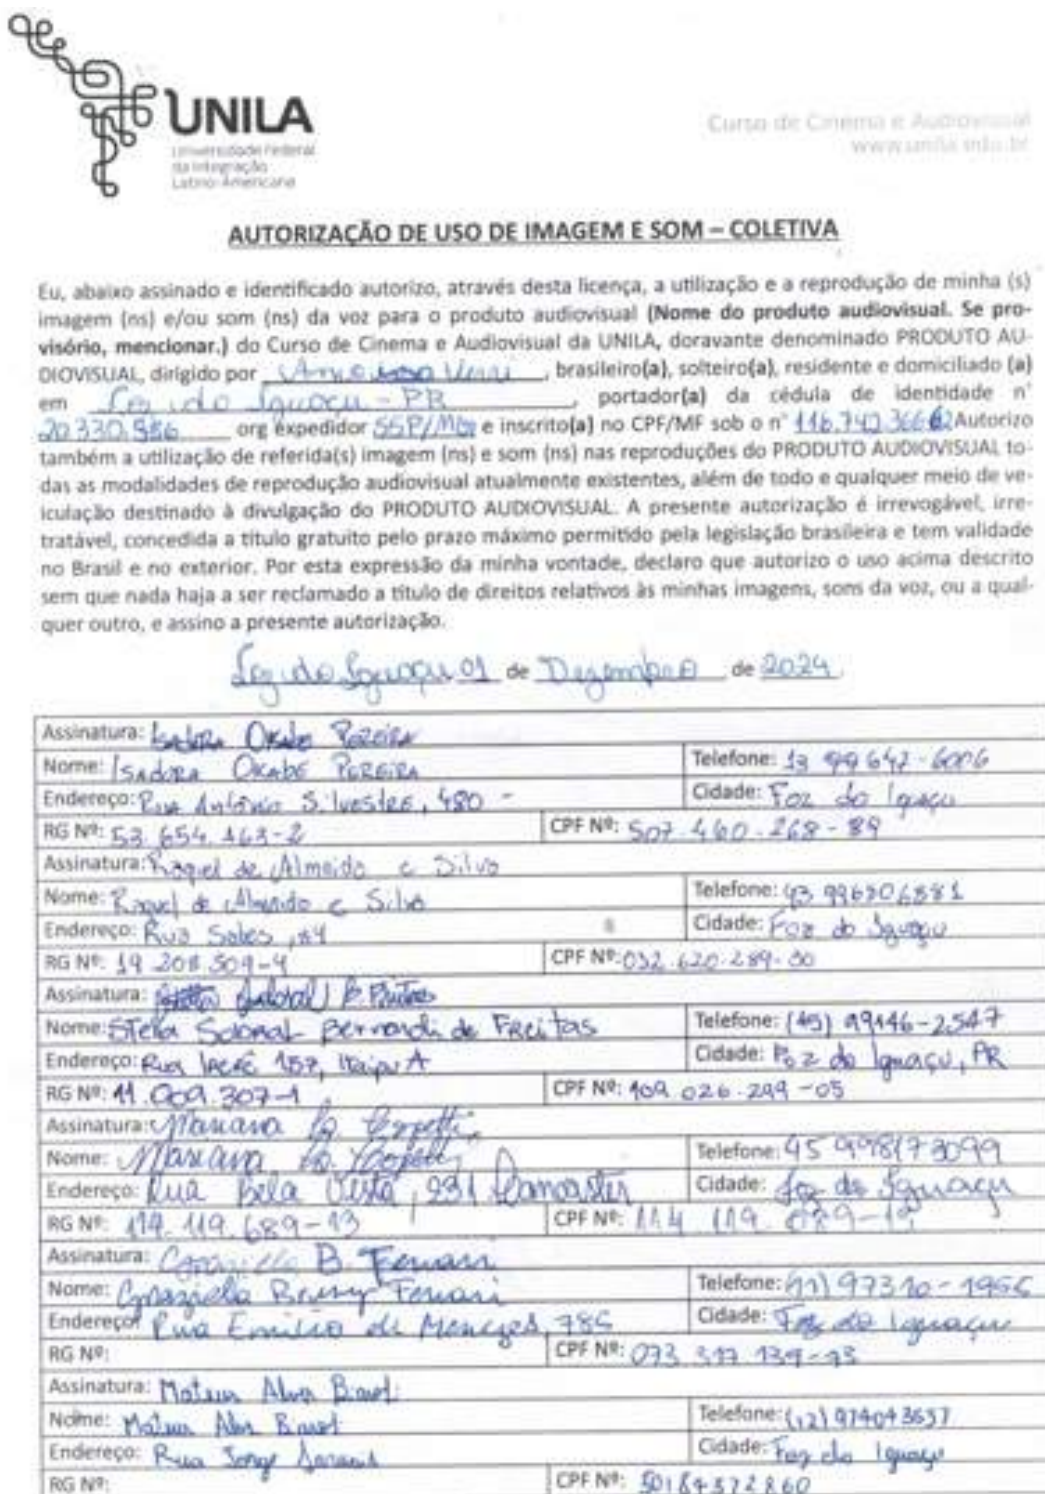 UNILA
Universidade Federal
da Integração
Latino-Americana
Curso de Cinema e Audiovisual
www.unila.edu.br
AUTORIZAÇÃO DE USO DE IMAGEM E SOM – COLETIVA
Eu, abaixo assinado e identificado autorizo, através desta licença, a utilização e a reprodução de minha (s)
imagem (ns) e/ou som (ns) da voz para o produto audiovisual (Nome do produto audiovisual. Se pro-
visório, mencionar.) do Curso de Cinema e Audiovisual da UNILA, doravante denominado PRODUTO AU-
DIOVISUAL, dirigido por , brasileiro(a), solteiro(a), residente e domiciliado (a)
em Foz do Iguaçu - PR , portador(a) da cédula de identidade n°
20.330.986 org expedidor SSP/MG e inscrito(a) no CPF/MF sob o n° Autorizo
também a utilização de referida(s) imagem (ns) e som (ns) nas reproduções do PRODUTO AUDIOVISUAL to-
das as modalidades de reprodução audiovisual atualmente existentes, além de todo e qualquer meio de ve-
iculação destinado à divulgação do PRODUTO AUDIOVISUAL. A presente autorização é irrevogável, irre-
tratável, concedida a título gratuito pelo prazo máximo permitido pela legislação brasileira e tem validade
no Brasil e no exterior. Por esta expressão da minha vontade, declaro que autorizo o uso acima descrito
sem que nada haja a ser reclamado a título de direitos relativos às minhas imagens, sons da voz, ou a qual-
quer outro, e assino a presente autorização.
Foz do Iguaçu 01 de Dezembro de 2024
Assinatura: Isadora Okabe Pereira
Nome: Isadora Okabe Pereira Telefone: 13 99647-6006
Endereço: Rua Antônio Silvestre, 480 - Cidade: Foz do Iguaçu
RG Nº: 53.654.163-2 CPF Nº: 507.460.268-89
Assinatura: Raquel de Almeida e Silva
Nome: Raquel de Almeida e Silva Telefone:
Endereço: Rua Cidade: Foz do Iguaçu
RG Nº: 19.208.509-4 CPF Nº: 032.620.289-00
Assinatura:
Nome: Stella Bernardi de Freitas Telefone: (45) 99146-2547
Endereço: Rua 157, Itaipu A Cidade: Foz do Iguaçu, PR
RG Nº: 11.009.307-1 CPF Nº: 109.026.299-05
Assinatura: Mariana
Nome: Mariana Telefone:
Endereço: Rua Bela Vista, 931 Lancaster Cidade: Foz do Iguaçu
RG Nº: 119.119.689-13 CPF Nº:
Assinatura: Graziella B. Ferrari
Nome: Graziella Ferrari Telefone:
Endereço: Rua Emilio de Menezes, 785 Cidade: Foz do Iguaçu
RG Nº: CPF Nº:
Assinatura: Mateus
Nome: Mateus Telefone: (12) 974043637
Endereço: Rua Jorge Cidade: Foz do Iguaçu
RG Nº: CPF Nº: 50184372860